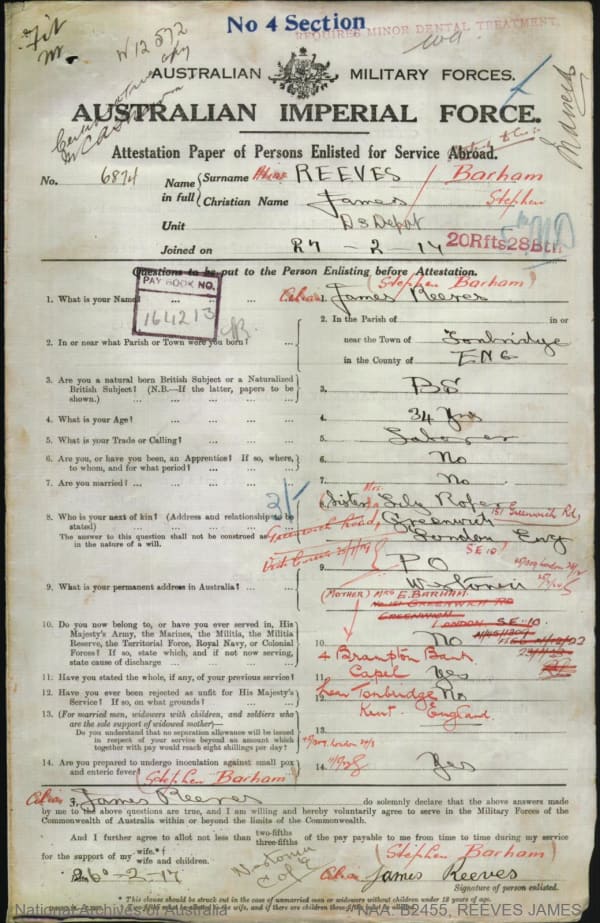 No 4 Section
REQUIRES MINOR DENTAL TREATMENT.
Fit
W 12572
AUSTRALIAN MILITARY FORCES.
AUSTRALIAN IMPERIAL FORCE.
Attestation Paper of Persons Enlisted for Service Abroad.
No. 6874
Name in full { Surname Alias REEVES / Barham
Christian Name James / Stephen
Unit D3 Depot
Joined on 27 - 2 - 17 20Rfts28Btn
Questions to be put to the Person Enlisting before Attestation.
PAY BOOK NO.
164213
(Stephen Barham)
1. What is your Name? ... ... ... 1. Alias James Reeves
2. In or near what Parish or Town were you born? ... 2. In the Parish of in or
near the Town of Tonbridge
in the County of ENG
3. Are you a natural born British Subject or a Naturalized British Subject? (N.B.—If the latter, papers to be shown.) ... 3. BS
4. What is your Age? ... 4. 34 Yrs
5. What is your Trade or Calling? ... 5. Laborer
6. Are you, or have you been, an Apprentice? If so, where, to whom, and for what period? ... 6. No
7. Are you married? ... 7. No
8. Who is your next of kin? (Address and relationship to be stated) 8. (Sister) Mrs. Lily Roper
The answer to this question shall not be construed as in the nature of a will.
3/-
Greenwich 151 Greenwich Rd,
London Eng
SE 10
9. What is your permanent address in Australia? ... 9. PO
W
(MOTHER) MRS E. BARHAM.
No 151 GREENWICH RD
GREENWICH
LONDON SE-10.
10. Do you now belong to, or have you ever served in, His Majesty's Army, the Marines, the Militia, the Militia Reserve, the Territorial Force, Royal Navy, or Colonial Forces? If so, state which, and if not now serving, state cause of discharge 10. No
4 Brampton Bank
Capel
near Tonbridge
Kent. England.
11. Have you stated the whole, if any, of your previous service? 11. Yes
12. Have you ever been rejected as unfit for His Majesty's Service? If so, on what grounds? ... 12. No
13. (For married men, widowers with children, and soldiers who are the sole support of widowed mother)— 13.
Do you understand that no separation allowance will be issued in respect of your service beyond an amount which together with pay would reach eight shillings per day?
14. Are you prepared to undergo inoculation against small pox and enteric fever? 14. Yes
(Stephen Barham)
Alias I, James Reeves do solemnly declare that the above answers made
by me to the above questions are true, and I am willing and hereby voluntarily agree to serve in the Military Forces of the
Commonwealth of Australia within or beyond the limits of the Commonwealth.
And I further agree to allot not less than two-fifths three-fifths of the pay payable to me from time to time during my service
for the support of my wife.*† wife and children.
(Stephen Barham)
Date 26-2-17 Alias James Reeves
Signature of person enlisted.
* This clause should be struck out in the case of unmarried men or widowers without children under 18 years of age.
† Two-fifths must be allotted to the wife, and if there are children three-fifths must be allotted.
National Archives of Australia NAA: B2455, REEVES JAMES